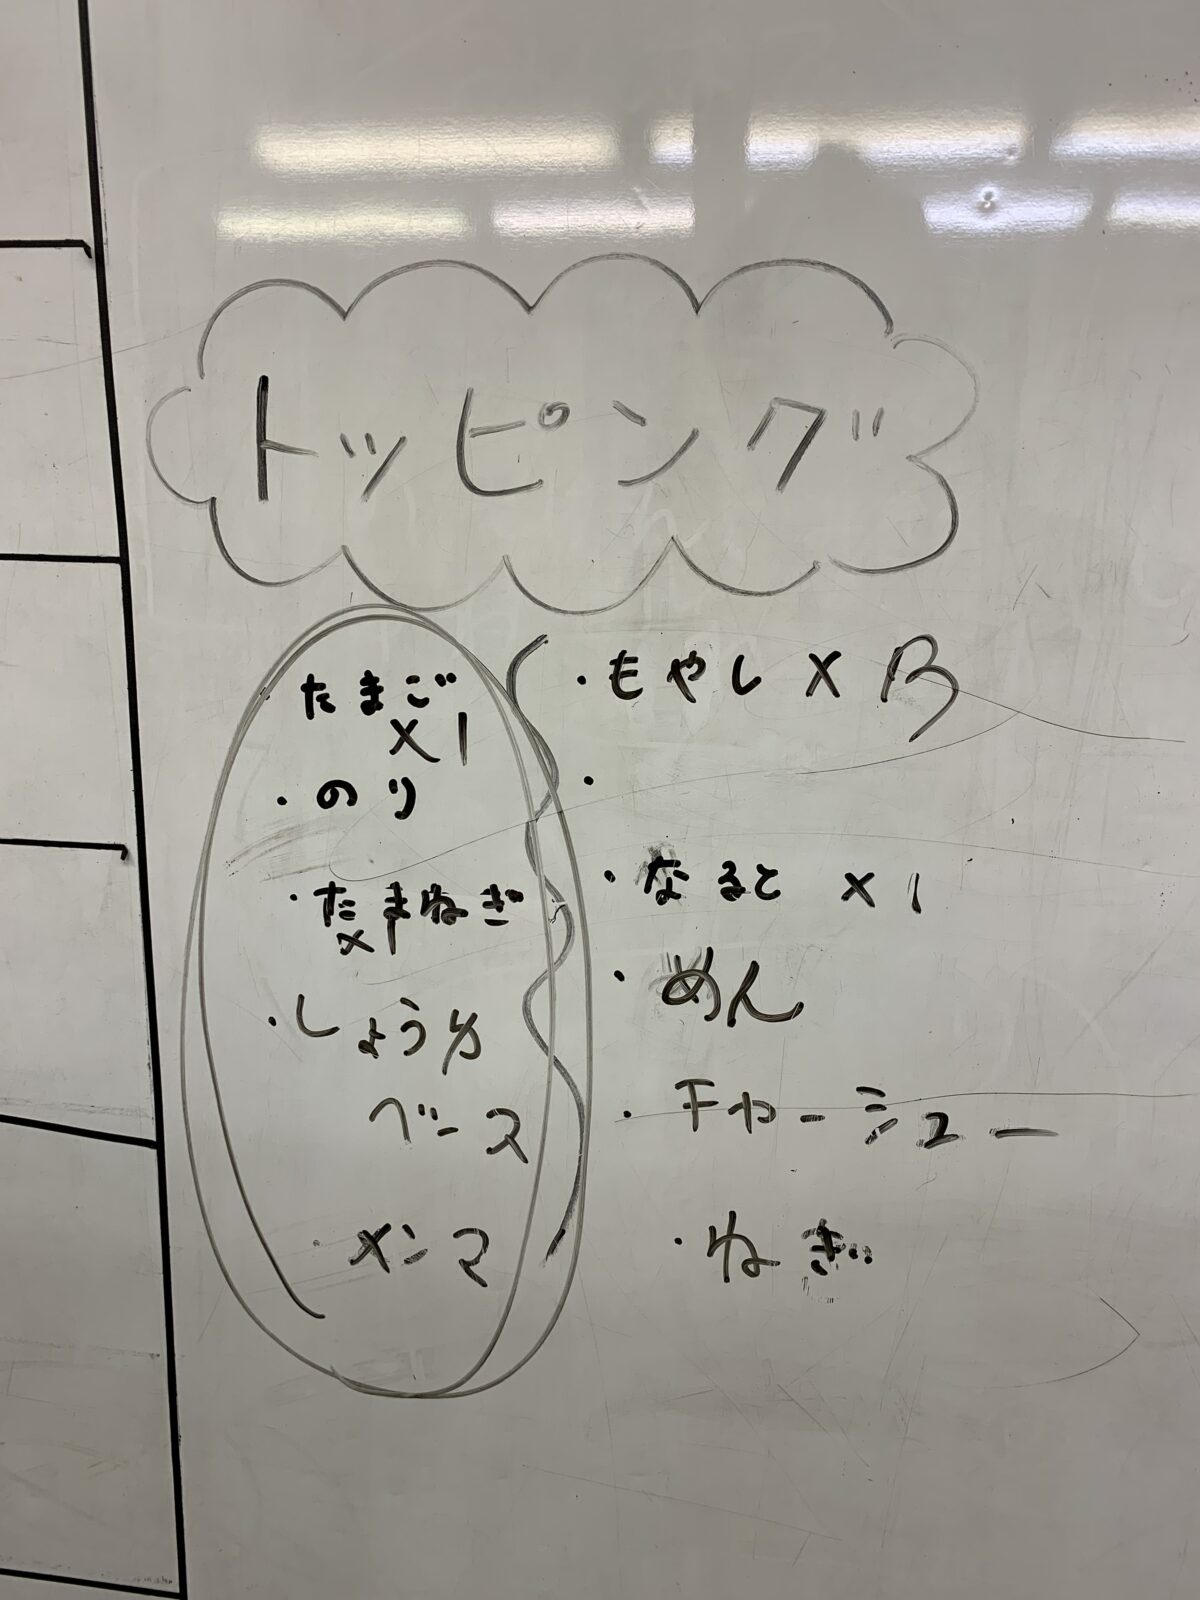 トッピング
たまご
×1
・のり
・たまねぎ
×1
・しょうゆ
ベース
・メンマ
・もやし×13
・
・なると ×1
・めん
・チャーシュー
・ねぎ